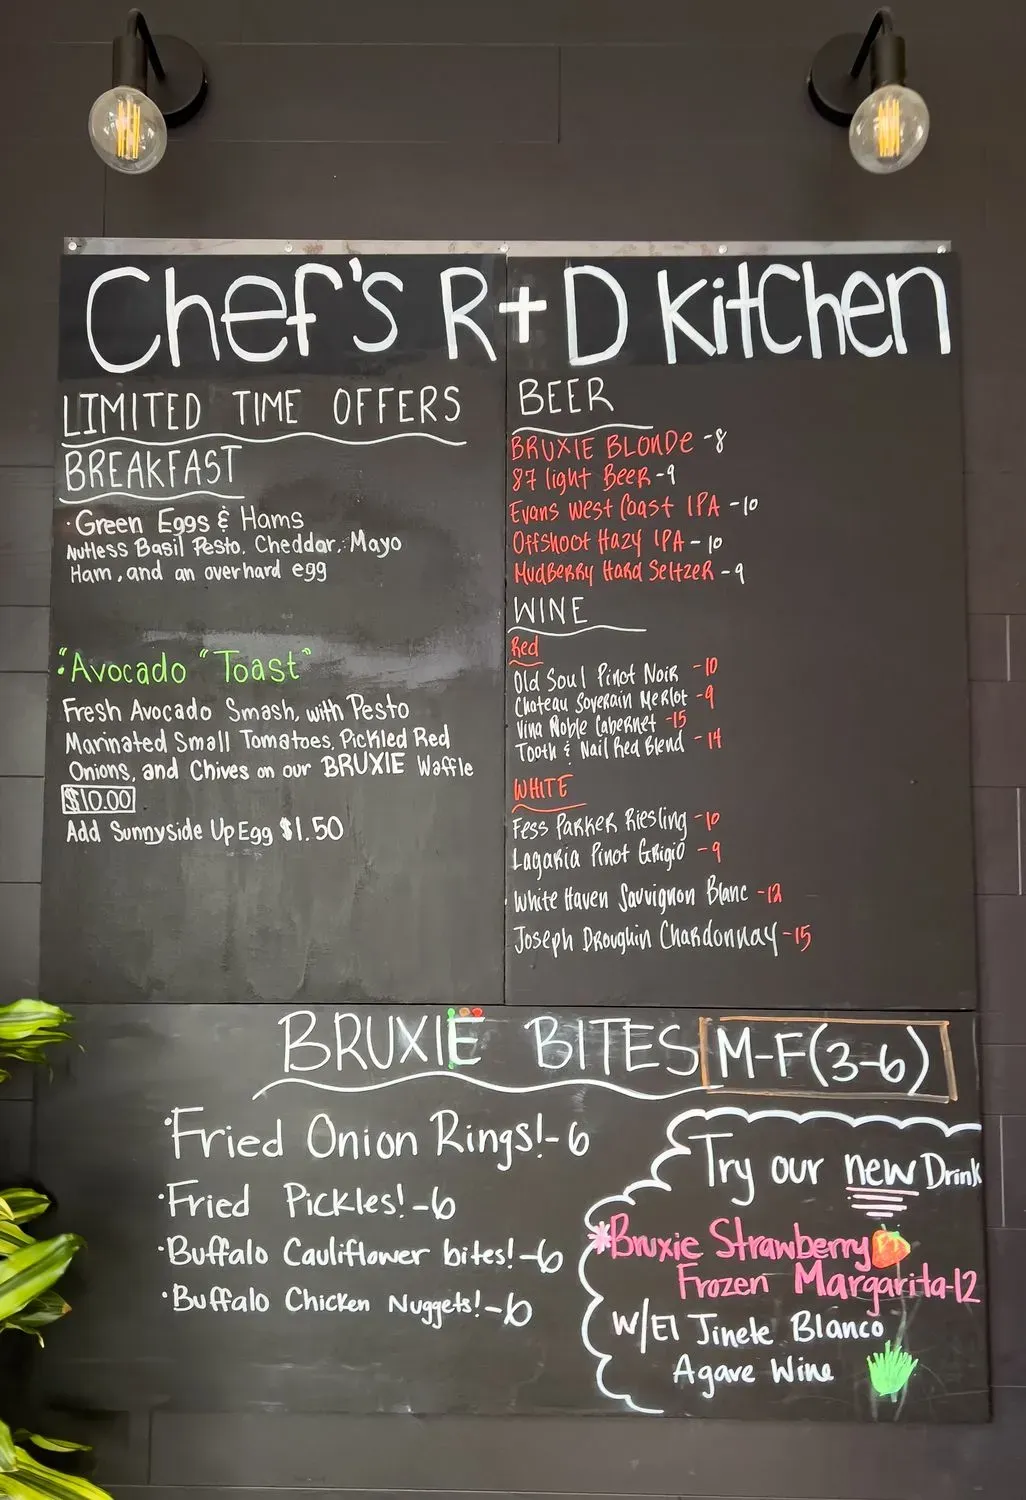 Chef's R+D Kitchen
LIMITED TIME OFFERS
BREAKFAST
· Green Eggs & Hams
Nutless Basil Pesto, Cheddar, Mayo
Ham, and an overhard egg
"Avocado "Toast"
Fresh Avocado Smash, with Pesto
Marinated Small Tomatoes, Pickled Red
Onions, and Chives on our BRUXIE Waffle
$10.00
Add Sunnyside Up Egg $1.50
BEER
BRUXIE BLONDE -8
87 light Beer -9
Evans West Coast IPA -10
Offshoot Hazy IPA - 10
MudBerry Hard Seltzer - 9
WINE
Red
Old Soul Pinot Noir - 10
Chateau Soverain Merlot - 9
Vina Noble Cabernet -15
Tooth & Nail Red Blend - 14
WHITE
Fess Parker Riesling - 10
Lagaria Pinot Grigio - 9
White Haven Sauvignon Blanc -12
Joseph Droughin Chardonnay -15
BRUXIE BITES M-F(3-6)
·Fried Onion Rings!-6
·Fried Pickles!-6
·Buffalo Cauliflower bites!-6
·Buffalo Chicken Nuggets!-6
Try our new Drink
*Bruxie Strawberry
Frozen Margarita-12
W/El Jinete Blanco
Agave Wine